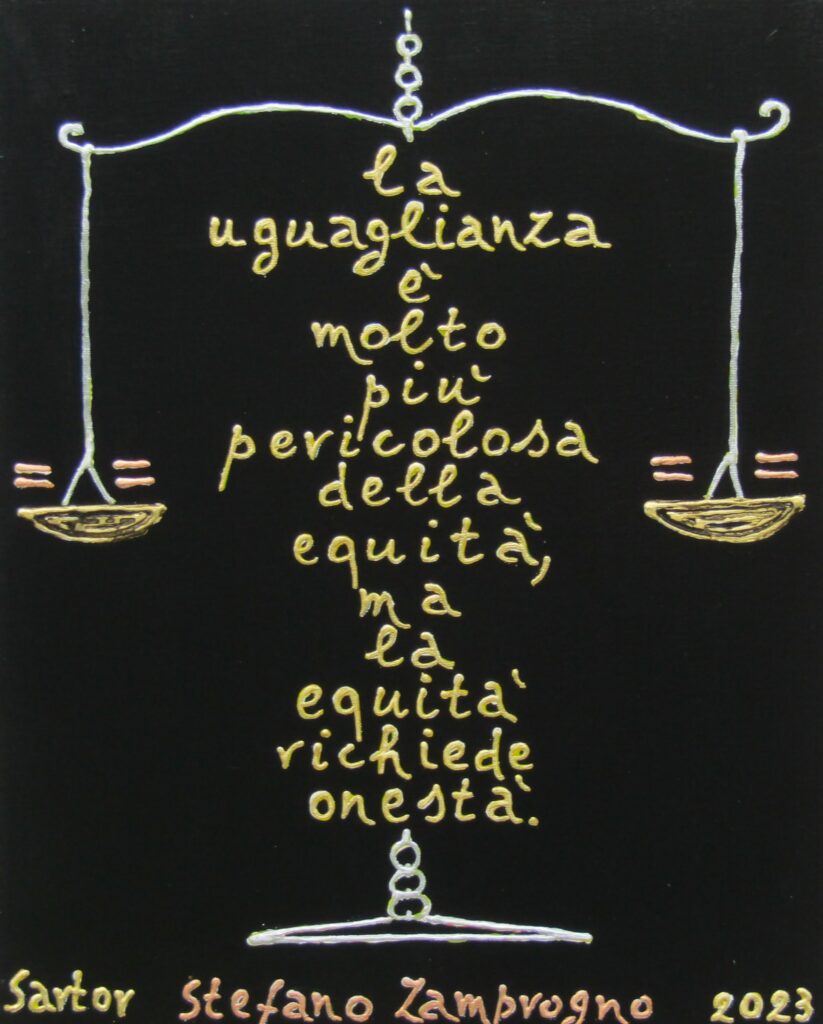 la
uguaglianza
è
molto
più
pericolosa
della
equità,
ma
la
equità
richiede
onestà.
Sartor Stefano Zamprogno 2023